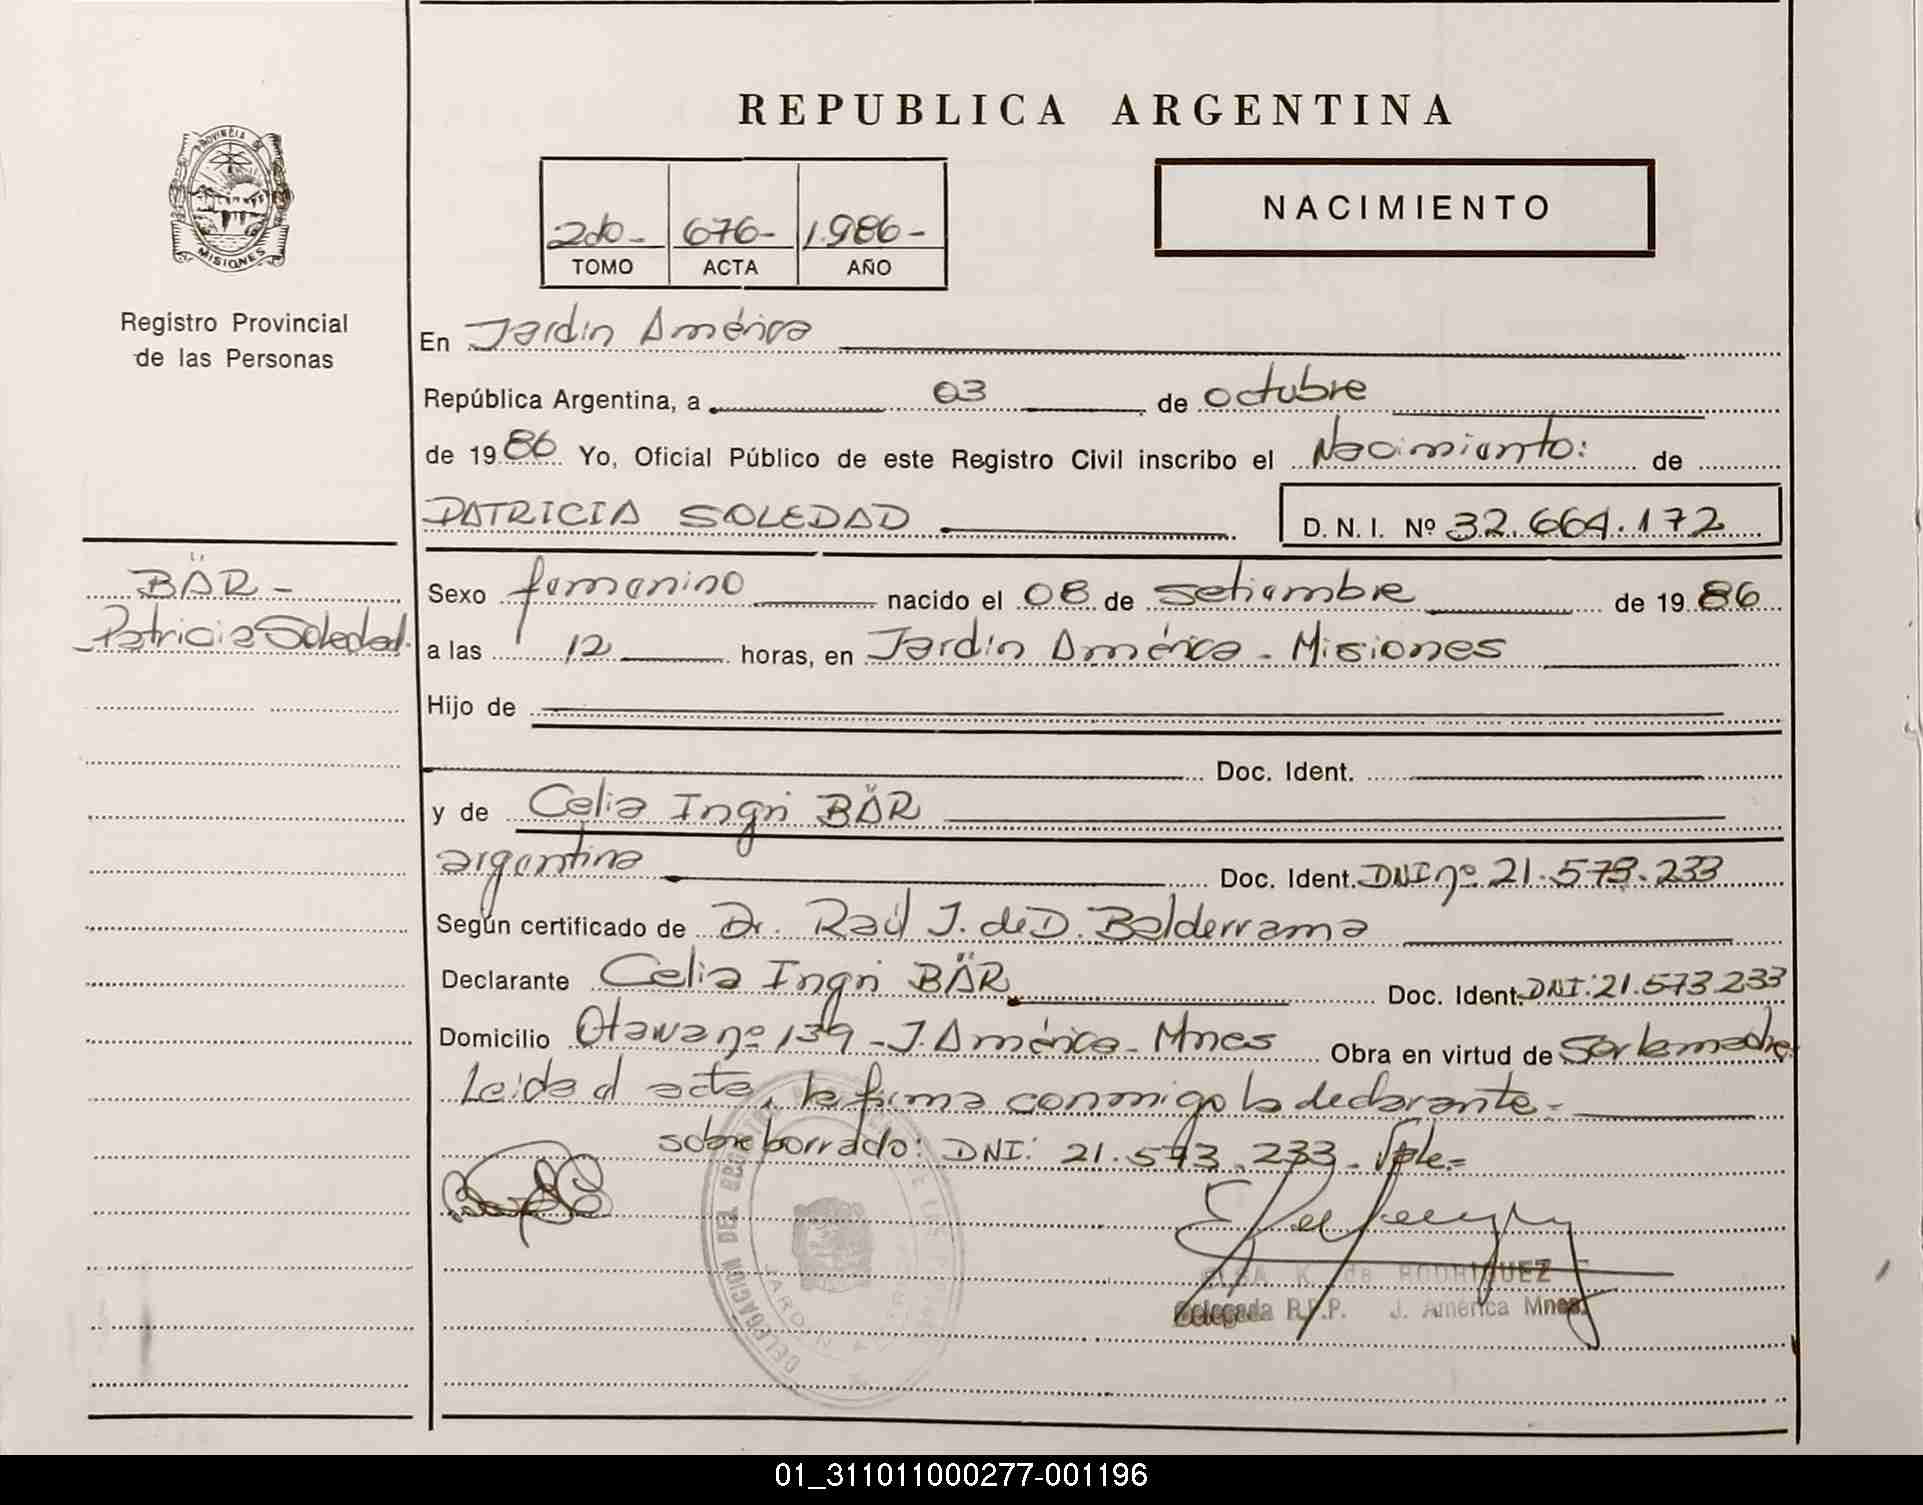 REPUBLICA ARGENTINA
PROVINCIA DE MISIONES
Registro Provincial
de las Personas
2do - 676 - 1.986 -
TOMO ACTA AÑO
NACIMIENTO
En Jardín América
República Argentina, a 03 de octubre
de 1986 Yo, Oficial Público de este Registro Civil inscribo el Nacimiento: de
PATRICIA SOLEDAD D. N. I. Nº 32.664.172
BÄR -
Patricia Soledad.
Sexo femenino nacido el 08 de setiembre de 1986
a las 12 horas, en Jardín América - Misiones
Hijo de
Doc. Ident.
y de Celia Ingri BÄR
argentina Doc. Ident. DNI nº 21.573.233
Según certificado de Dr. Raúl J. de D. Balderrama
Declarante Celia Ingri BÄR Doc. Ident. DNI: 21.573.233
Domicilio Otawa nº 139 - J. América - Mnes Obra en virtud de Ser la madre.
Leida el acta, la firma conmigo la declarante.-
sobre borrado: DNI: 21.573.233. Vale.-
DELEGACION DEL REGISTRO
JARDIN AMERICA
ELSA K. de RODRIGUEZ
Delegada R.P.P. J. América Mnes.
01_311011000277-001196